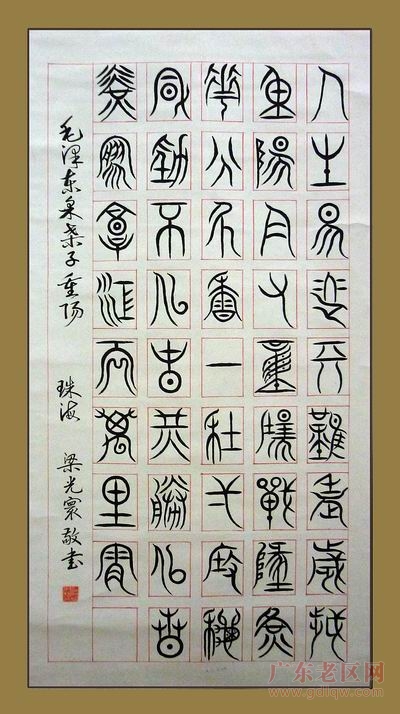 人生易老天難老歲歲
重陽今又重陽戰地黃
花分外香一年一度秋
風勁不似春光勝似春
光寥廓江天萬里霜
毛泽东采桑子重阳 珠海 梁光寰敬书
广东老区网
www.gdlqw.com